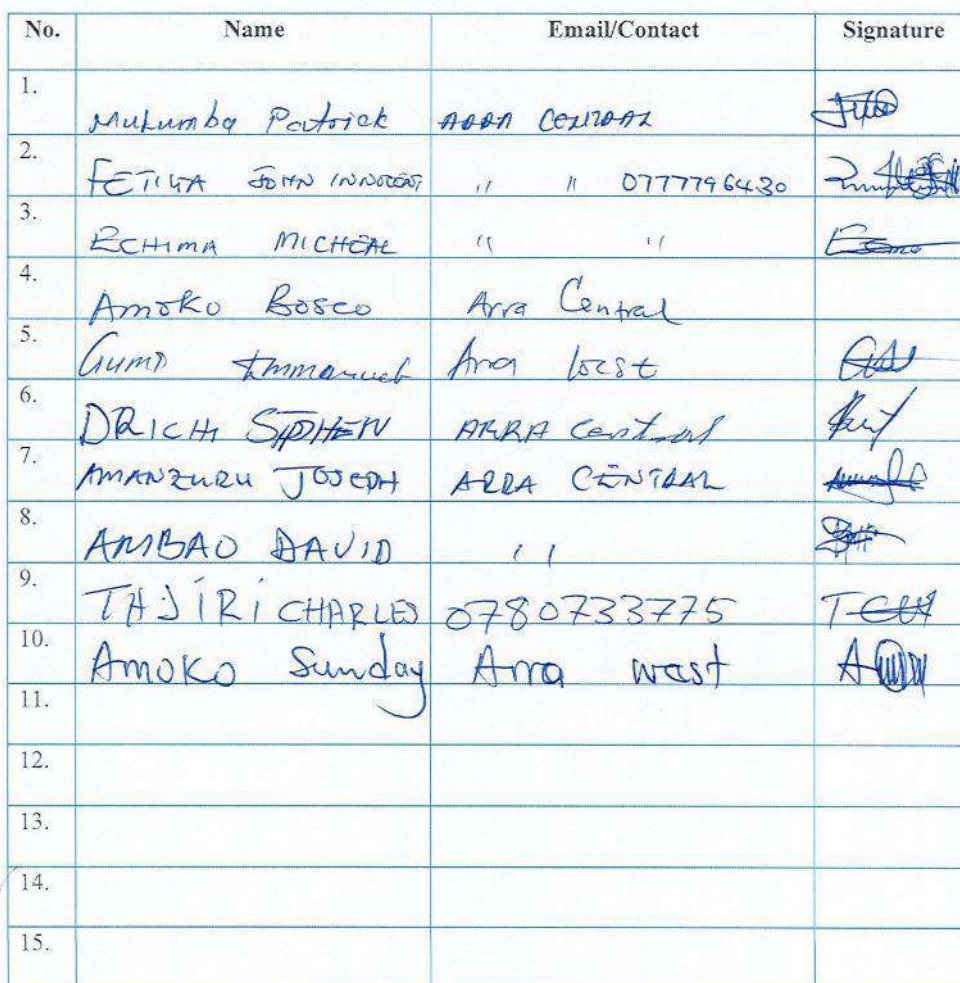 No. Name Email/Contact Signature
1. Mukumba Patrick ARRA CENTRAL
2. FETIYA JOHN INNOCENT " " 0777796430
3. ECHIMA MICHEAL " "
4. Amoko Bosco Arra Central
5. Gumo Emmanuel Arra West
6. DRICHI STEPHEN ARRA Central
7. AMANZURU JOSEPH ARRA CENTRAL
8. AMBAO DAVID "
9. TAJIRI CHARLES 0780733775
10. Amoko Sunday Arra west
11.
12.
13.
14.
15.